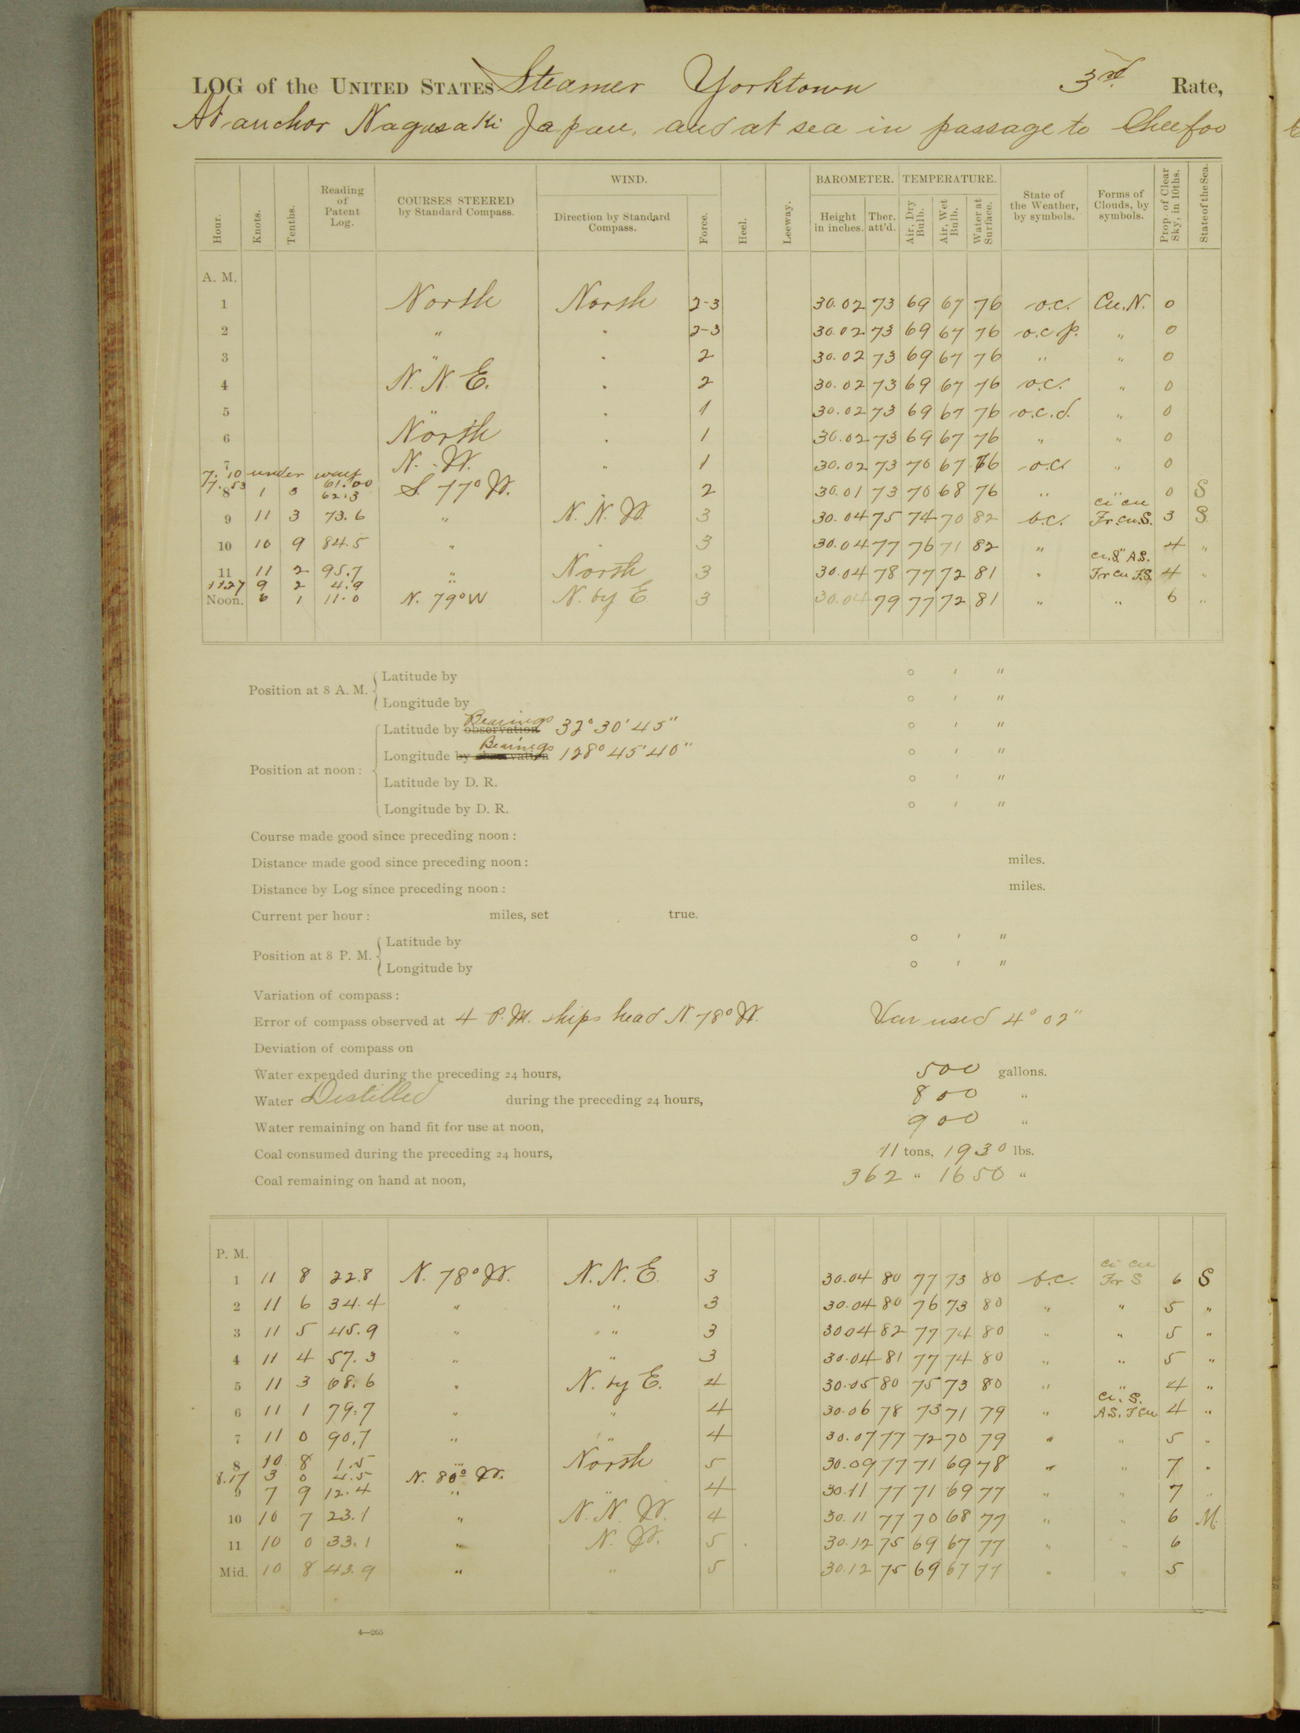 LOG of the UNITED STATES Steamer Yorktown 3rd Rate,
At anchor Nagasaki Japan, and at sea in passage to Cheefoo
Hour. Knots. Tenths. Reading of Patent Log. COURSES STEERED by Standard Compass. WIND. Direction by Standard Compass. Force. Heel. Leeway. BAROMETER. Height in inches. Ther. att'd. TEMPERATURE. Air, Dry Bulb. Air, Wet Bulb. Water at Surface. State of the Weather, by symbols. Forms of Clouds, by symbols. Prop. of Clear Sky, in 10ths. State of the Sea.
A. M.
1 North North 2-3 30.02 73 69 67 76 o.c. Cu.N. 0
2 " " 2-3 30.02 73 69 67 76 o.c.p. " 0
3 " " 2 30.02 73 69 67 76 " " 0
4 N.N.E. " 2 30.02 73 69 67 76 o.c. " 0
5 " " 1 30.02 73 69 67 76 o.c.d. " 0
6 North " 1 30.02 73 69 67 76 " " 0
7 N.W. " 1 30.02 73 70 67 76 o.c. " 0
7.10 under way
7.53 61.00
8 1 3 62.3 S. 77° W. " 2 30.01 73 70 68 76 " " 0 S
9 11 3 73.6 " N.N.W. 3 30.04 75 74 70 82 b.c. Ci cu Fr.cu.S. 3 S
10 10 9 84.5 " " 3 30.04 77 76 71 82 " " 4 "
11 11 2 95.7 " North 3 30.04 78 77 72 81 " Ci.S. A.S. Fr cu F.S. 4 "
11.27 9 2 4.9 "
Noon. 6 1 11.0 N. 79° W N. by E 3 30.04 79 77 72 81 " " 6 "
Position at 8 A. M. Latitude by ° ′ ″
Longitude by ° ′ ″
Position at noon: Latitude by observation Bearings 32° 30' 45" ° ′ ″
Longitude by observation Bearings 128° 45' 40" ° ′ ″
Latitude by D. R. ° ′ ″
Longitude by D. R. ° ′ ″
Course made good since preceding noon:
Distance made good since preceding noon: miles.
Distance by Log since preceding noon: miles.
Current per hour: miles, set true.
Position at 8 P. M. Latitude by ° ′ ″
Longitude by ° ′ ″
Variation of compass:
Error of compass observed at 4 P.M. ships head N. 78° W. Var used 4° 02"
Deviation of compass on
Water expended during the preceding 24 hours, 500 gallons.
Water Distilled during the preceding 24 hours, 800 "
Water remaining on hand fit for use at noon, 900 "
Coal consumed during the preceding 24 hours, 11 tons, 1930 lbs.
Coal remaining on hand at noon, 362 " 1650 "
P. M.
1 11 8 22.8 N. 78° W. N.N.E. 3 30.04 80 77 73 80 b.c. Ci cu For S 6 S
2 11 6 34.4 " " 3 30.04 80 76 73 80 " " 5 "
3 11 5 45.9 " " 3 30.04 82 77 74 80 " " 5 "
4 11 4 57.3 " " 3 30.04 81 77 74 80 " " 5 "
5 11 3 68.6 " N. by E. 4 30.05 80 75 73 80 " " 4 "
6 11 1 79.7 " " 4 30.06 78 73 71 79 " Ci. S. A.S. F.cu 4 "
7 11 0 90.7 " " 4 30.07 77 72 70 79 " " 5 "
8 10 8 1.5 " North 5 30.09 77 71 69 78 " " 7 "
8.17 3 0 4.5 N. 80° W.
9 7 9 12.4 " " 4 30.11 77 71 69 77 " " 7 "
10 10 7 23.1 " N.N.W. 4 30.11 77 70 68 77 " " 6 M.
11 10 0 33.1 " N.W. 5 30.12 75 69 67 77 " " 6
Mid. 10 8 43.9 " " 5 30.12 75 69 67 77 " " 5
4—265